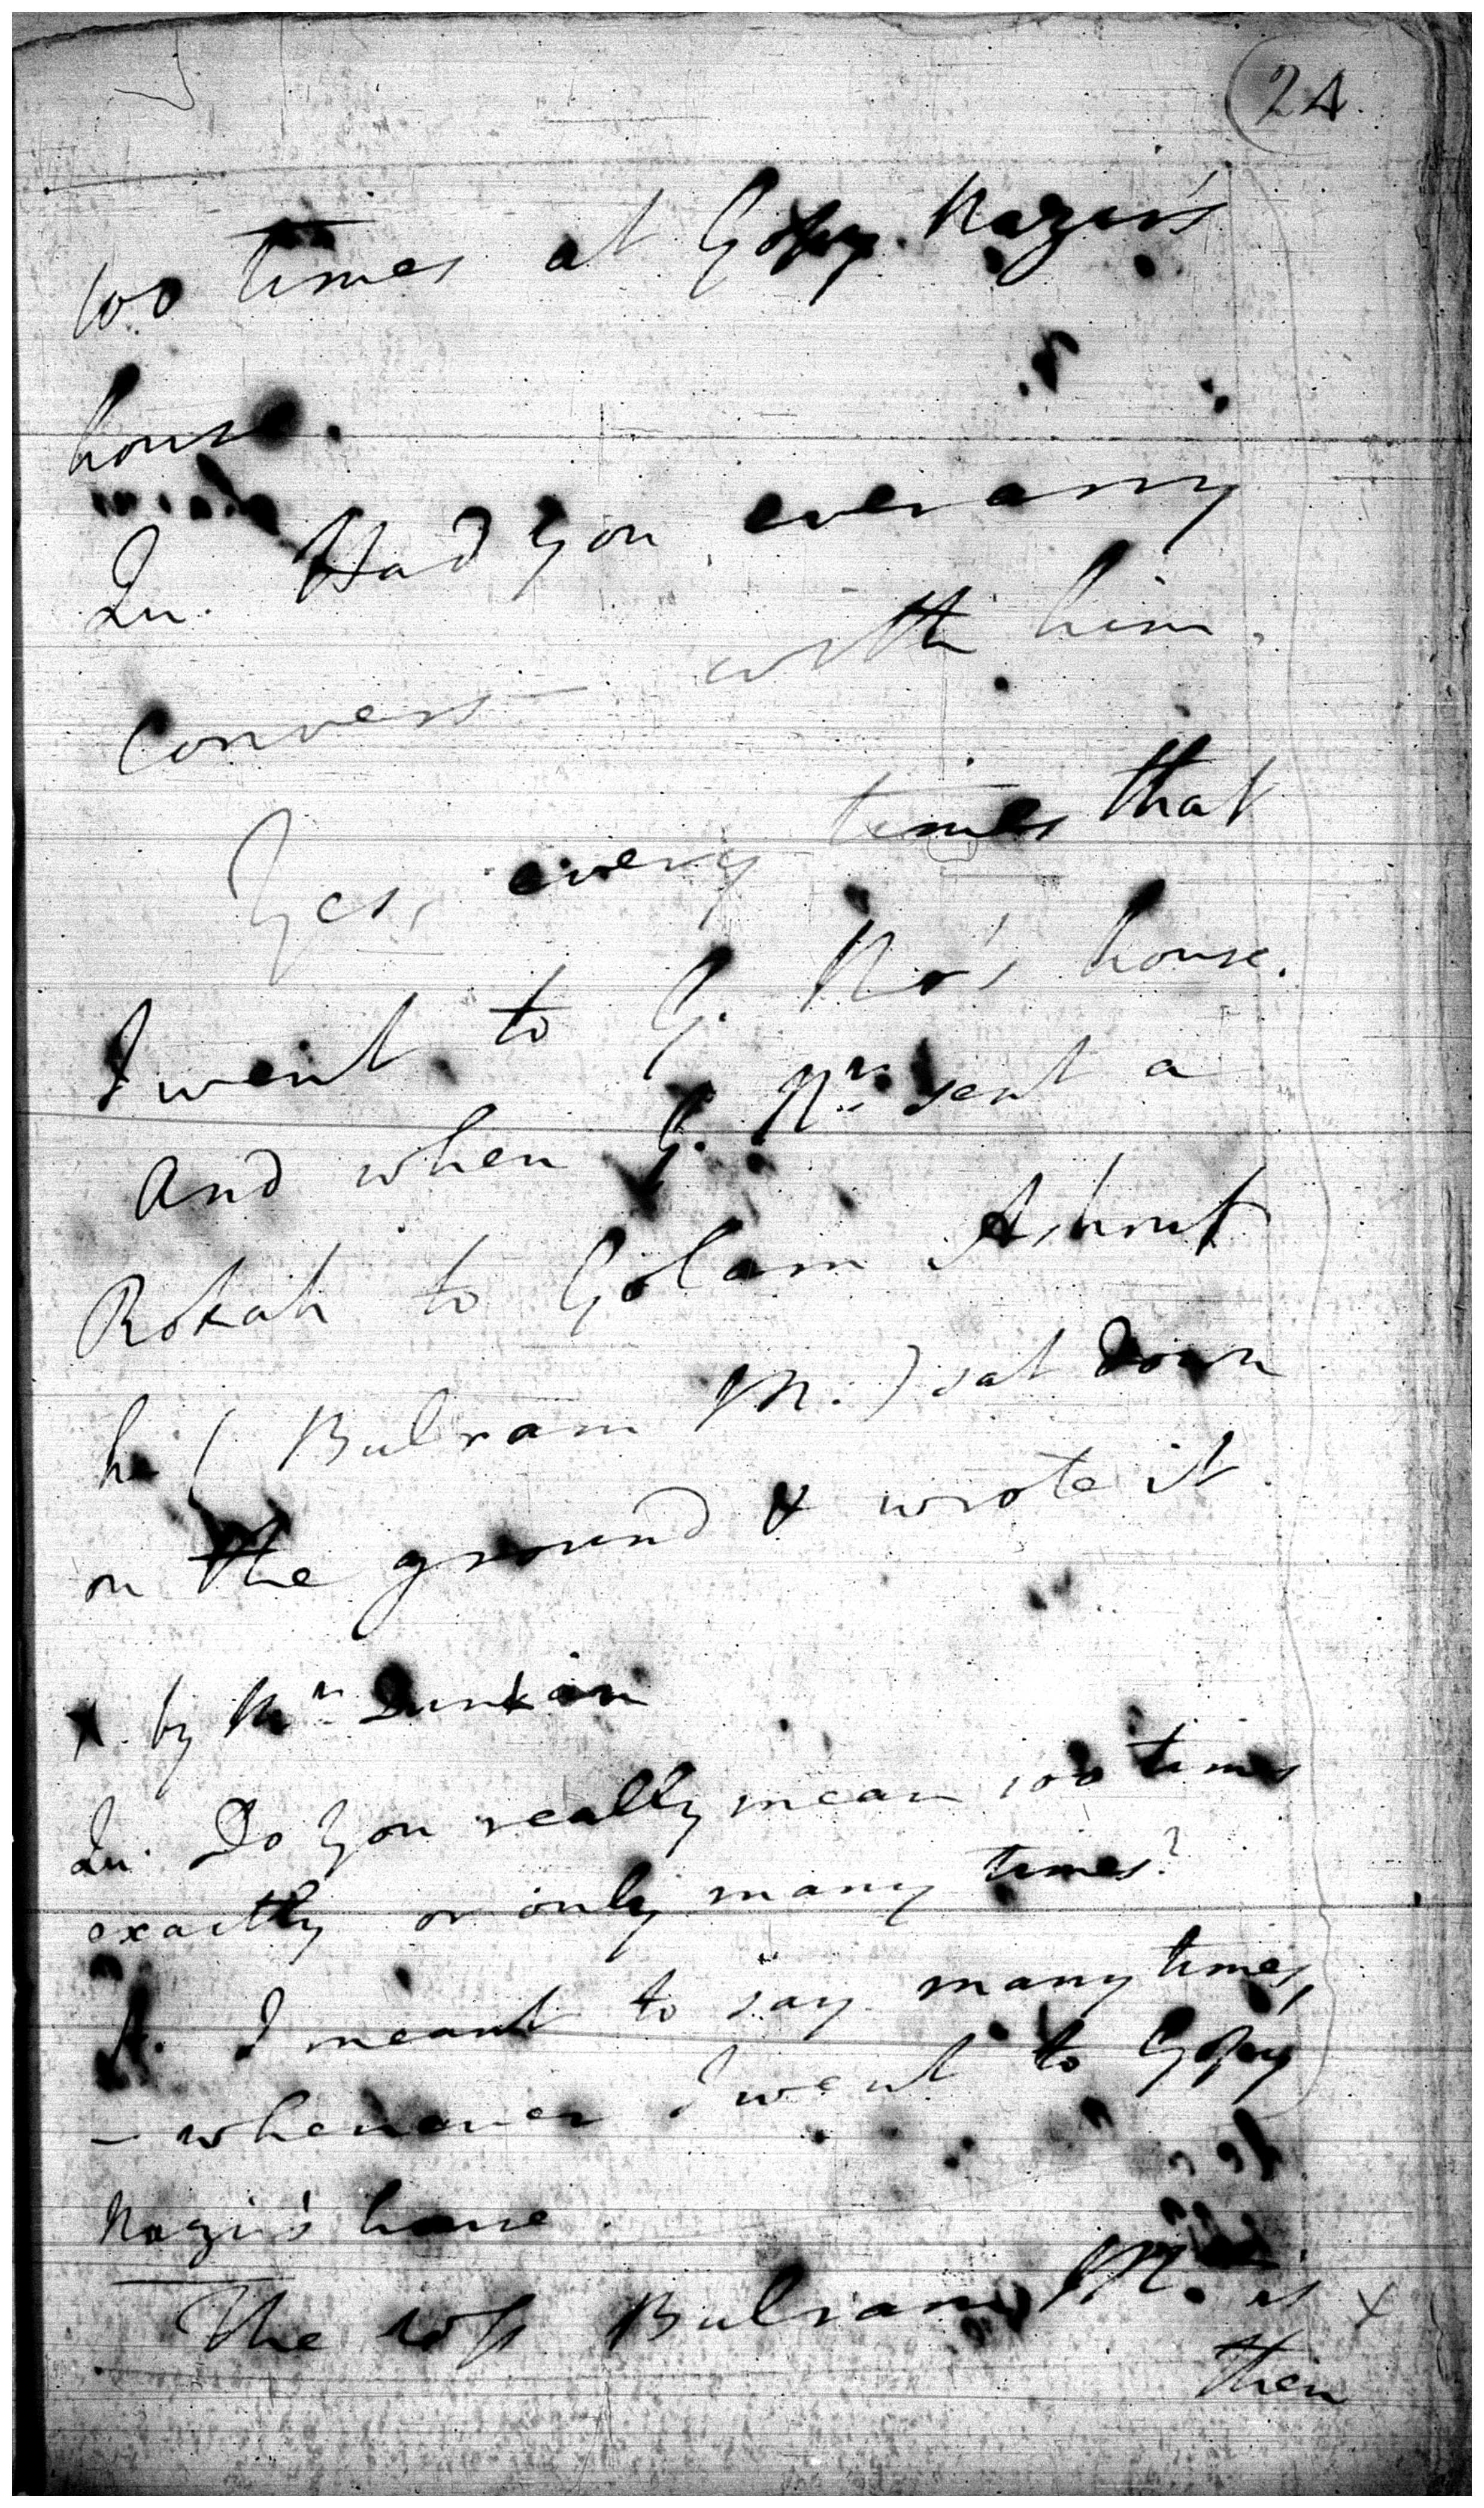 24
100 times at Gopy Nazir's
house.
Qu. Had you ever any
convers with him.
Yes, every times that
I went to G. Nr's house.
And when G. Nr. sent a
Rokah to Golam Ashruf
he (Bulram M.) sat down
on the ground & wrote it
X by Mr. Dunkin
Qu. Do you really mean 100 times
exactly or only many times?
A. I meant to say many times,
— whenever I went to Gopy
Nazir's house.
The Bulram M. is X
then